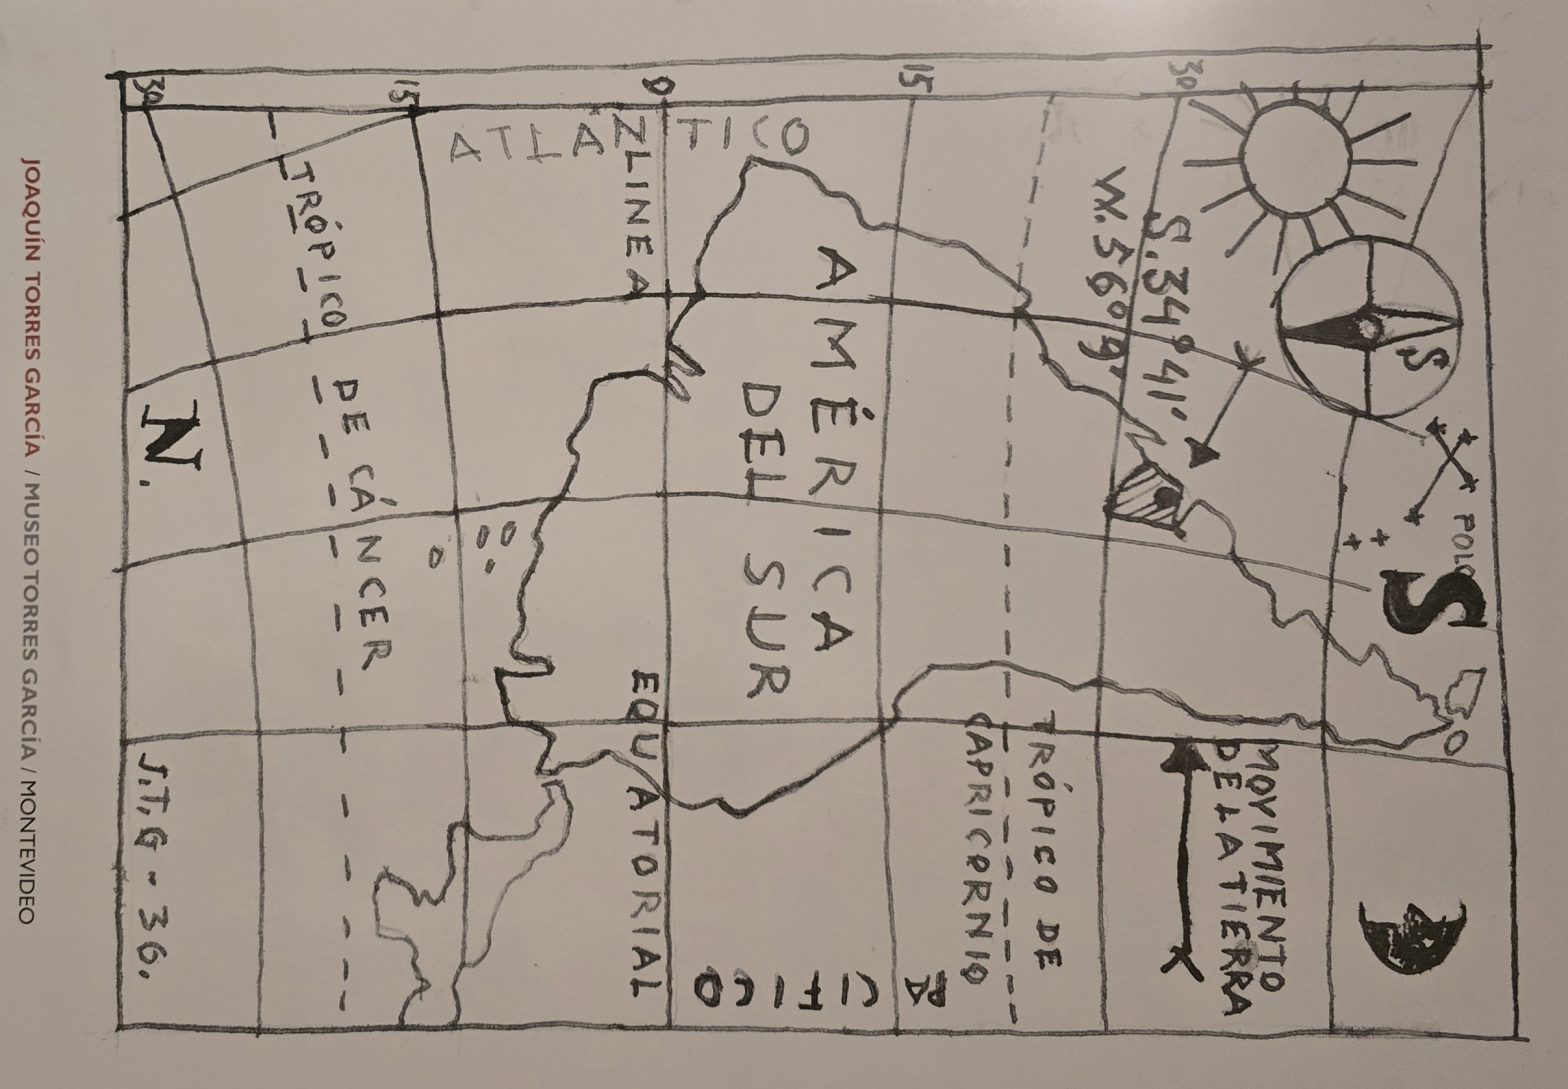 POLO
S
S
MOVIMIENTO
DE LA TIERRA
30
S.34°41'
W.56°9'
TRÓPICO DE
CAPRICORNIO
15
PACIFICO
AMÉRICA
DEL SUR
0
ATLÁNTICO
LINEA EQUATORIAL
15
TRÓPICO DE CÁNCER
30
N.
J.T,G-36.
JOAQUÍN TORRES GARCÍA / MUSEO TORRES GARCÍA / MONTEVIDEO